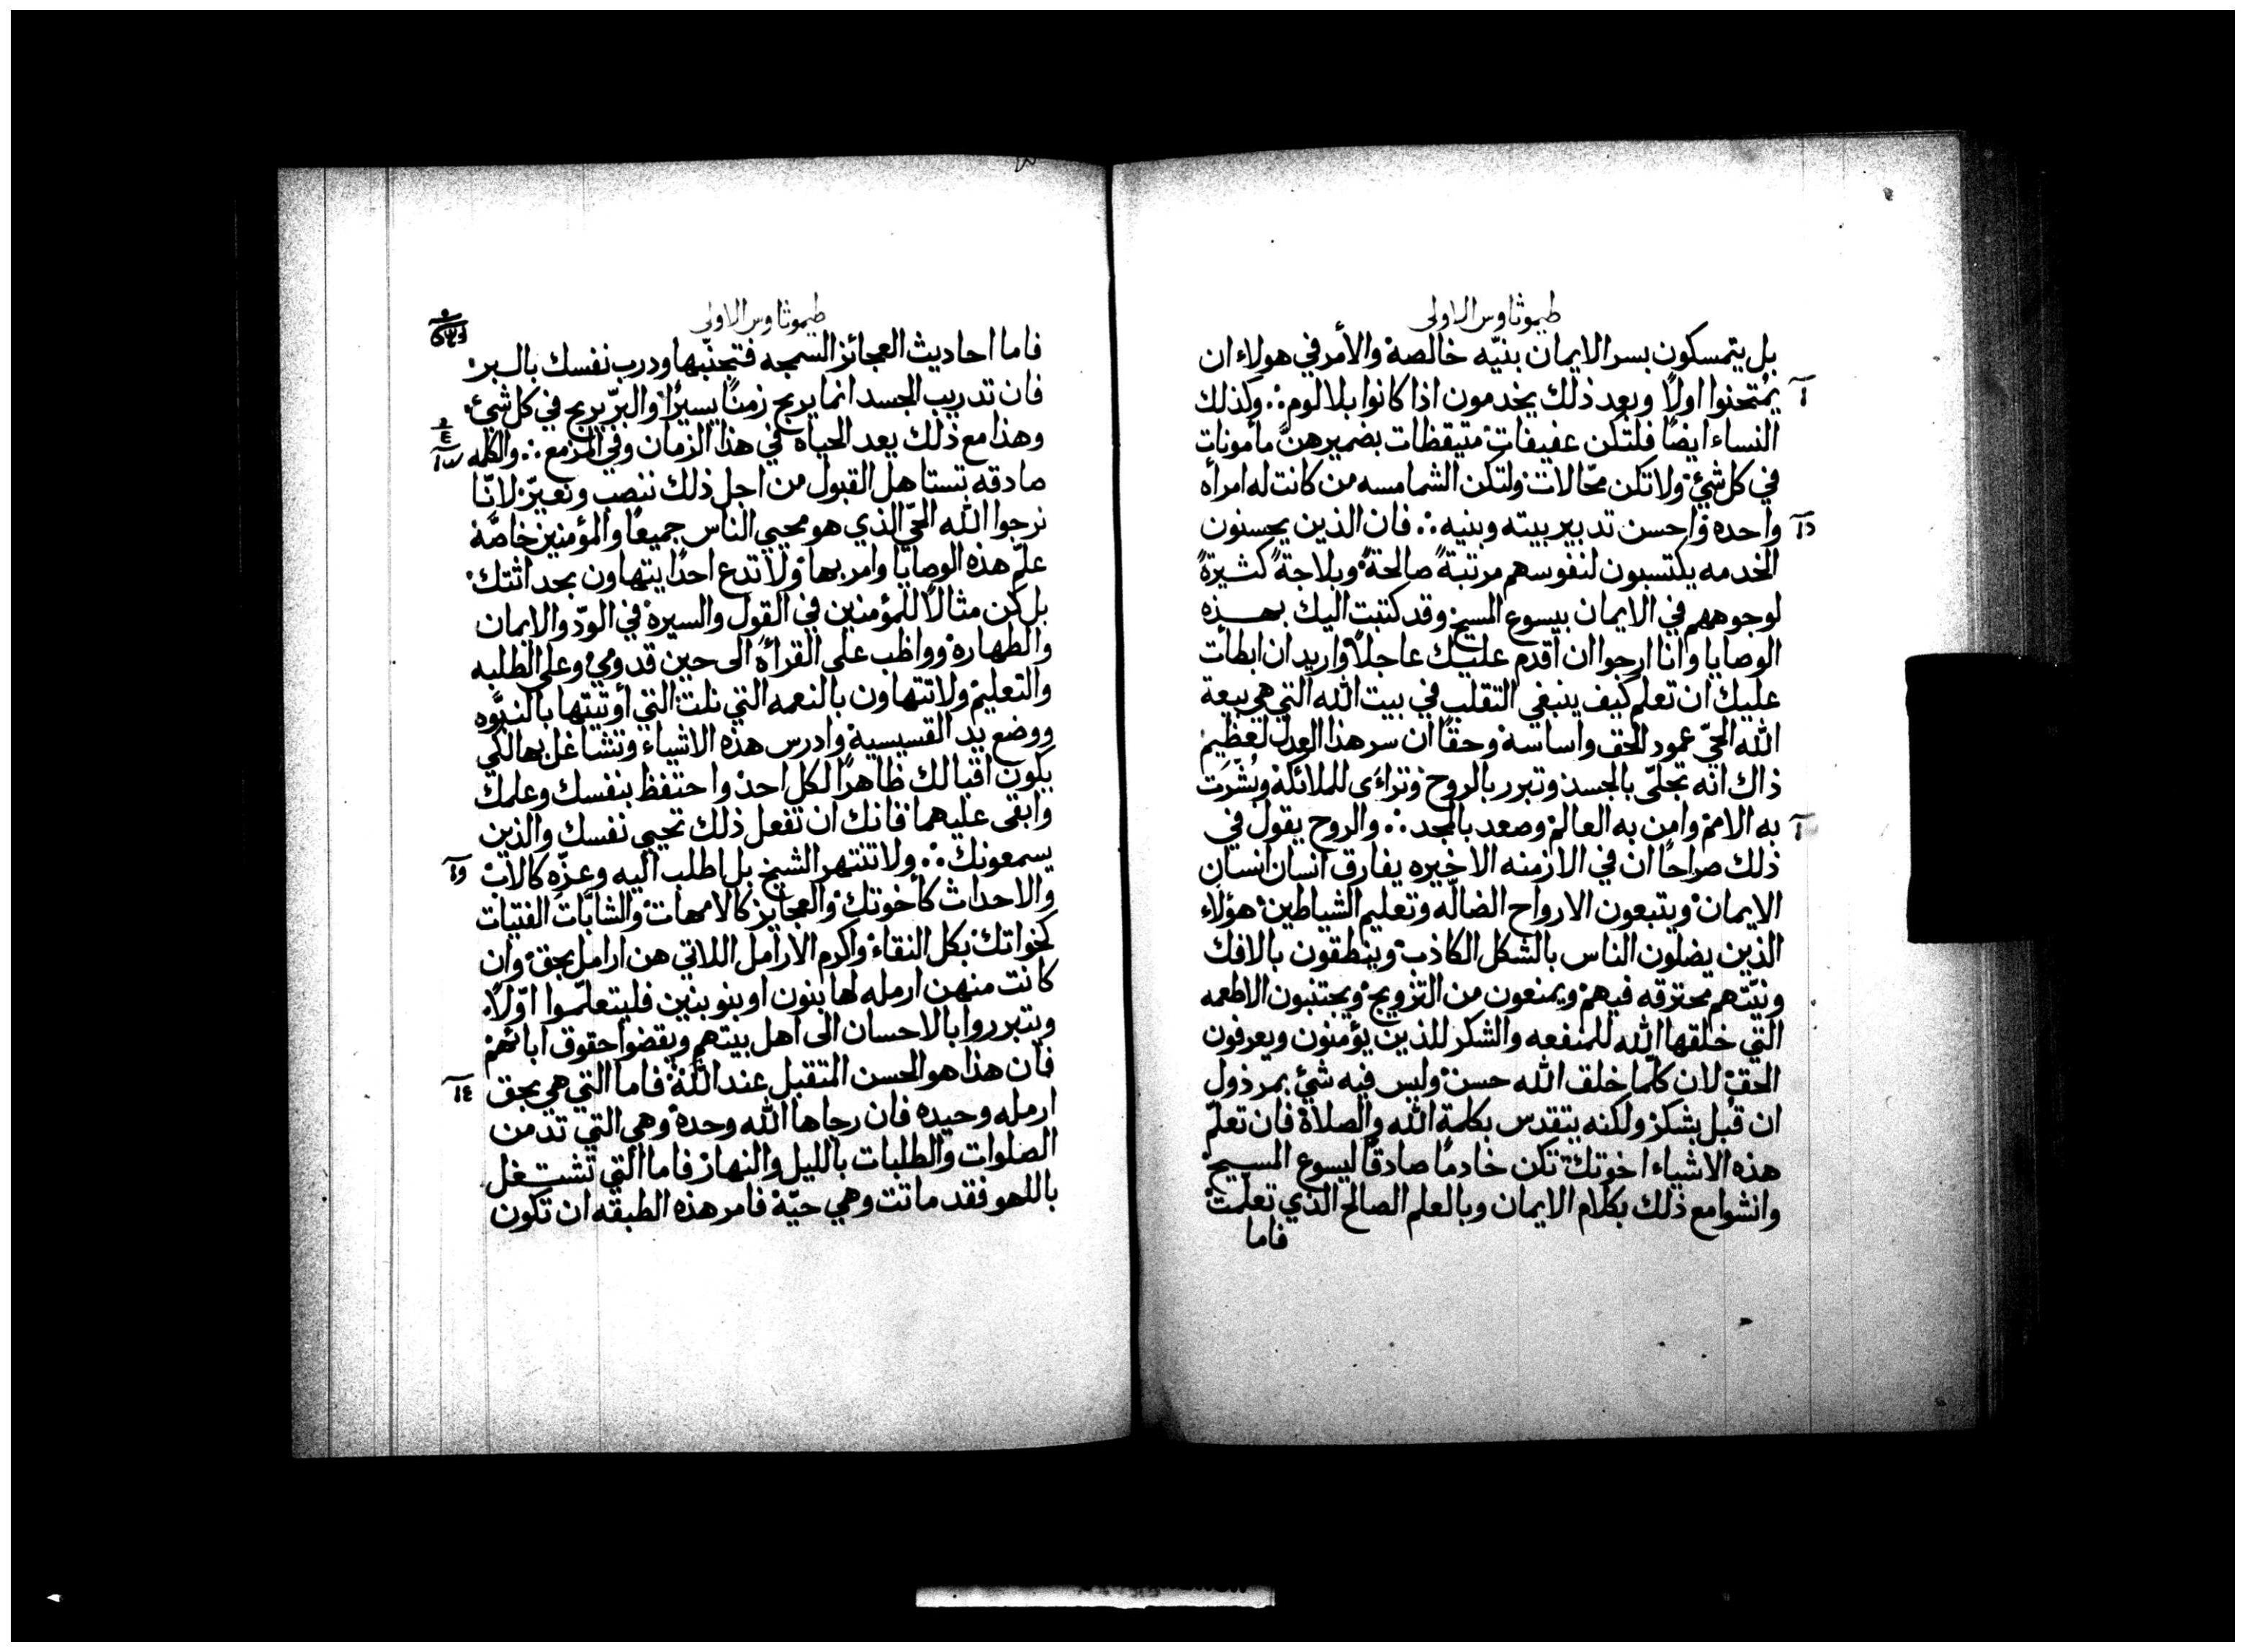 طيموثاوس الاولى
بل يتمسكون بسر الايمان بنيّه خالصة والأمر في هولاء ان
يمُتحنوا اولًا وبعد ذلك يخدمون اذا كانوا بلا لوم؞ وكذلك
النساء ايضًا فلتكن عفيفات متيقظات بضميرهنّ مأمونات
في كل شيْ ولا تكن محّالات ولتكن الشمامسه من كانت له امرأه
واحده واحسن تدبير بيته وبنيه؞ فان الذين يحسنون
الخدمه يكتسبون لنفوسهم مرتبةً صالحةً وبلاجةً كثيرةً
لوجوههم في الايمان بيسوع المسيح وقد كتبت اليك بهذه
الوصايا وانا ارجوا ان اقدم عليك عاجلًا واريد ان ابطأت
عليك ان تعلم كيف ينبغي التقلب في بيت الله التي هي بيعة
الله الحيّ عمود الحق واساسة وحقًا ان سر هذا العدل لعظيم
ذاك انه تجلّى بالجسد وتبرر بالروح وتراءى للملائكة وبُشّرت
به الامم وامن به العالم وصعد بالمجد؞ والروح يقول في
ذلك صراحًا ان في الازمنه الاخيره يفارق انسان انسان
الايمان ويتبعون الارواح الضالّه وتعليم الشياطين هؤلاء
الذين يضلون الناس بالشكل الكاذب وينطقون بالافك
ونيّتهم محترقه فيهم ويمنعون من التزويج ويجتنبون الاطعمه
التي خلقها الله للمنفعه والشكر للذين يؤمنون ويعرفون
الحق لان كلّما خلق الله حسن وليس فيه شيْ بمرذول
ان قُبل بشكر ولكنه يتقدس بكلمة الله والصلاة فان تعلّم
هذه الاشياء اخوتك تكن خادمًا صادقًا ليسوع المسيح
وانشوا مع ذلك بكلام الايمان وبالعلم الصالح الذي تعلمت
فاما
طيموثاوس الاولى
فاما احاديث العجائز السمجه فتجنّبها ودرب نفسك بالبر
فان تدريب الجسد انما يربح زمنًا يسيرًا والبرّ يربح في كل شيْ
وهذا مع ذلك يعد الحياه في هذا الزمان وفي المزمع؞ والكلمه
صادقه تستاهل القبول من اجل ذلك ننصب ونعيّر لانّا
نرجوا الله الحيّ الذي هو محيي الناس جميعًا والمؤمنين خاصّة
علّم هذه الوصايا وامر بها ولا تدع احدًا يتهاون بحداثتك
بل كن مثالًا للمؤمنين في القول والسيرة في الودّ والايمان
والطهارة وواظب على القراة الى حين قدومي وعلى الطلبه
والتعليم ولا تتهاون بالنعمه التي نلت التي أوتيتها بالنبوّه
ووضع يد القسيسية وادرس هذه الاشياء وتشاغل بها لكي
يكون اقبالك ظاهرًا لكل احد واحتفظ بنفسك وعلمك
وابقى عليهما فانك ان تفعل ذلك تحيي نفسك والذين
يسمعونك؞ ولا تنتهر الشيخ بل اطلب اليه وعزّه كالاب
والاحداث كأخوتك والعجايز كالامهات والشابّات الفتيات
كخواتك بكل النقاء واكرم الارامل اللاتي هن ارامل بحق وان
كانت منهن ارمله لها بنون او بنو بنين فليتعلّموا اوّلًا
ويتبرروا بالاحسان الى اهل بيتهم ويقضوا حقوق ابائهم
فان هذا هو الحسن المتقبل عند الله فاما التي هي بحق
ارمله وحيده فان رجاها الله وحدة وهي التي تدمن
الصلوات والطلبات بالليل والنهار فاما التي تشتغل
باللهو فقد ماتت وهي حيّة فامر هذه الطبقه ان تكون